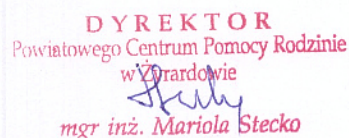 DYREKTOR
Powiatowego Centrum Pomocy Rodzinie
w Żyrardowie
mgr inż. Mariola Stecko